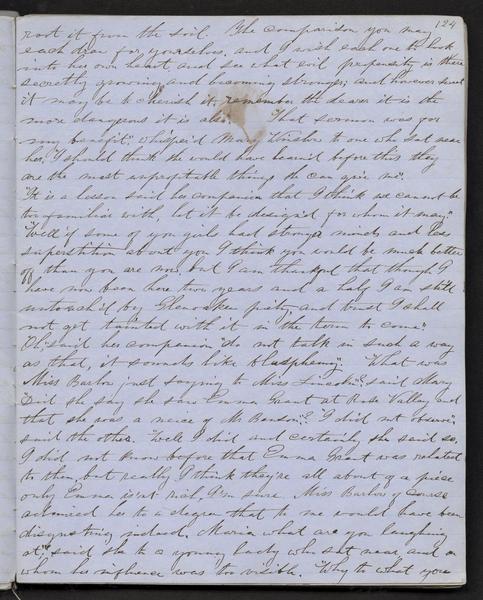 124
root it from the soil. The comparison you may
each draw for yourselves, and I wish each one to look
into her own heart and see what evil propensity is there
secretly growing and becoming stronger; and however sweet
it may be to cherish it, remember the dearer it is the
more dangerous it is also." "That sermon was for
my benefit", whisper'd Mary Winslow to one who sat near
her, "I should think she would have learn'd before this they
are the most unprofitable things she can give me".
"It is a lesson said her companion that I think we cannot be
too familiar with, let it be design'd for whom it may."
"Well if some of you girls had stronger minds and less
superstition about you I think you would be much better
off than you are now, but I am thankful that though I
have now been here two years and a half I am still
untouch'd by Glenoaken piety, and trust I shall
not get tainted with it in the term to come."
"Oh", said her companion "do not talk in such a way
as that, it sounds like blasphemy". "What was
Miss Barlow just saying to Miss Lincoln", said Mary
"Did she say she saw Emma Grant at Rose Valley and
that she was a neice of Mr Benson"? "I did not observe",
said the other. "Well I did and certainly she said so,
I did not know before that Emma Grant was related
to them but really I think they're all about of a piece
only Emma is'nt rich, I'm sure. Miss Barlow of course
admired her to a degree that to me would have been
disgusting indeed. Maria what are you laughing
at", said she to a young lady who sat near, and on
whom her influence was too visible. "Why to what you